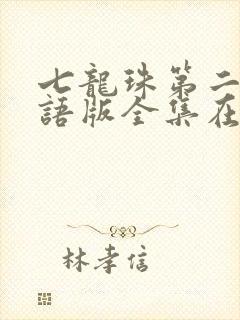 七龍珠第二
語版全集在
林孝信